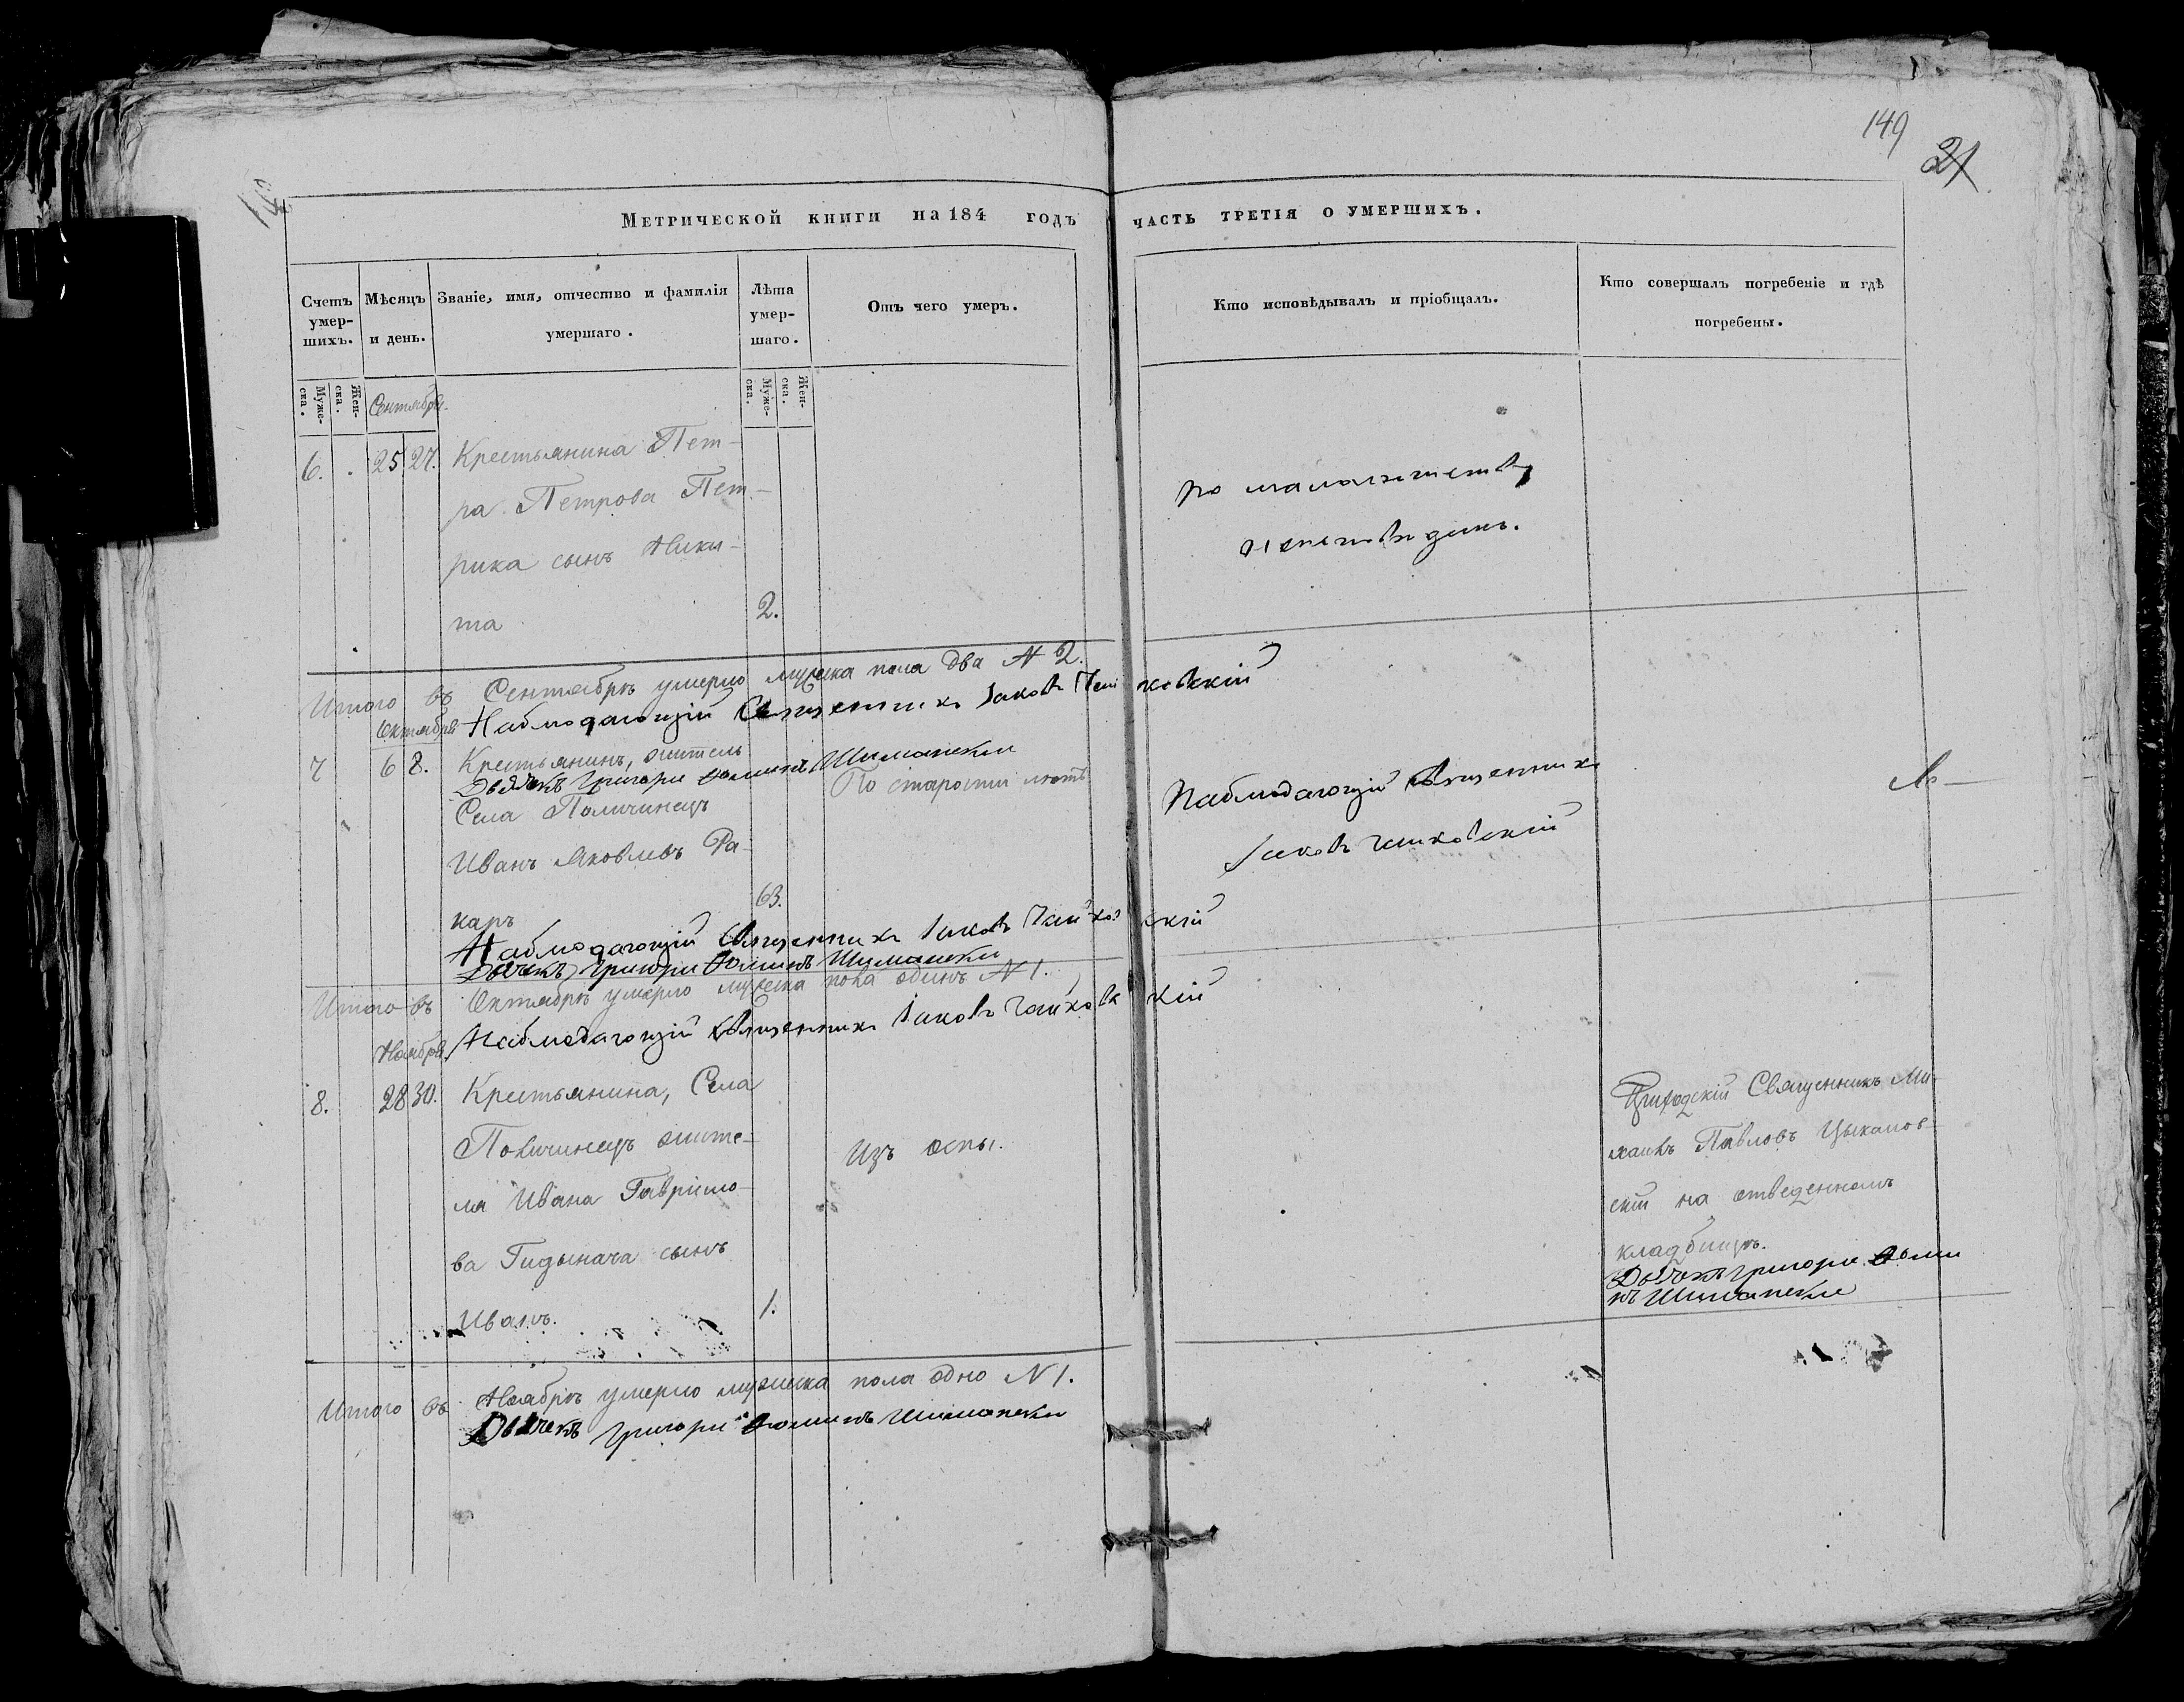 149
21
Метрической книги на 184 годъ часть третія о умершихъ.
Счетъ умер-шихъ.
Мѣсяцъ и день.
Званіе, имя, отчество и фамилія умершаго.
Лѣта умер-шаго.
Отъ чего умеръ.
Кто исповѣдывалъ и пріобщалъ.
Кто совершалъ погребеніе и гдѣ погребены.
Муже-ска.
Жен-ска.
Муже-ска.
Жен-ска.
Сентябрь.
6. 25. 27. Крестьянина Пет-
ра Петрова Пет-
рика сынъ Ники-
та 2.
по малолѣтству
неисповѣданъ.
Итого въ Сентябрѣ умерло мужеска пола два N 2.
Наблюдающій Священникъ Іаковъ Чайковскій
Октябрь
7 6 8. Крестьянинъ, житель
Дьячекъ Григори Фоминъ Шимански
Села Поличинецъ
Иванъ Яковлевъ Ра-
каръ 63.
По старости лѣтъ
Наблюдающій Священникъ
Іаковъ Чайковскій
Наблюдающій Священникъ Іаковъ Чайковскій
Дьячекъ Григори Фоминъ Шимански
Итого въ Октябрѣ умерло мужеска пола одинъ N 1.
Наблюдающій Священникъ Іаковъ Чайковскій
Ноябрь
8. 28 30. Крестьянина, Села
Поличинецъ жите-
ля Ивана Гаврило-
ва Гидынача сынъ
Иванъ. 1.
Изъ оспы.
Приходскій Священникъ Ми-
хаилъ Павловъ Цыкалов-
скій на отведенномъ
кладбищѣ.
Дьячекъ Григори Фоми
нъ Шимански
Итого въ Ноябрѣ умерло мужеска пола одно N 1.
Дьячекъ Григори Фоминъ Шимански